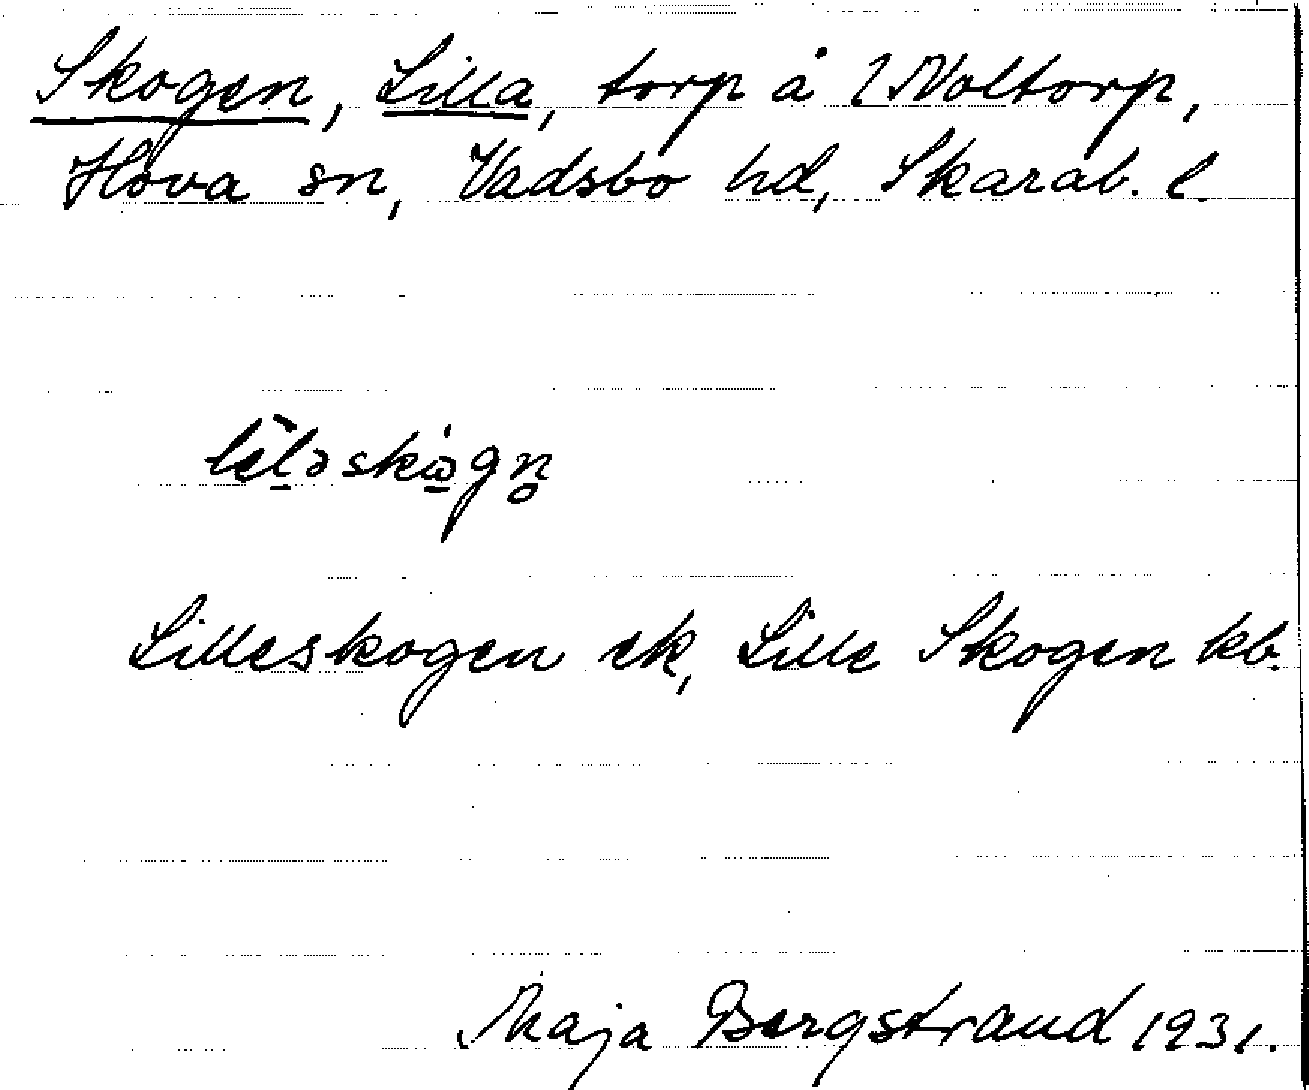 Skogen, Lilla, torp å 2 Noltorp,
Hova sn, Vadsbo hd, Skarab. l.
Lilleskogen ek, Lille Skogen kb.
Maja Bergstrand 1931.